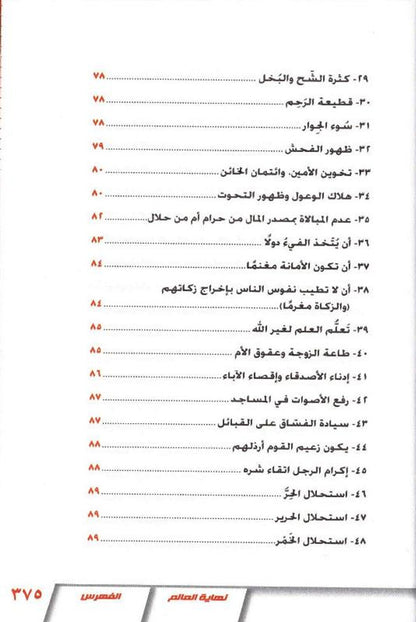 ٢٩- كثرة الشُّح والبُخل .......... ٧٨
٣٠- قطيعة الرَحِم .......... ٧٨
٣١- سُوء الجِوار .......... ٧٨
٣٢- ظهور الفحش .......... ٧٩
٣٣- تخوين الأمين، وائتمان الخائن .......... ٨٠
٣٤- هلاك الوعول وظهور التحوت .......... ٨٠
٣٥- عدم المبالاة بمصدر المال من حرام أم من حلال .......... ٨٢
٣٦- أن يُتّخذ الفيءُ دولًا .......... ٨٣
٣٧- أن تكون الأمانة مغنمًا .......... ٨٤
٣٨- أن لا تطيب نفوس الناس بإخراج زكاتهم
(والزكاة مغرمًا) .......... ٨٤
٣٩- تَعلُّم العلم لغير الله .......... ٨٥
٤٠- طاعة الزوجة وعقوق الأم .......... ٨٥
٤١- إدناء الأصدقاء وإقصاء الآباء .......... ٨٦
٤٢- رفع الأصوات في المساجد .......... ٨٧
٤٣- سيادة الفسّاق على القبائل .......... ٨٧
٤٤- يكون زعيم القوم أرذلهم .......... ٨٨
٤٥- إكرام الرجل اتقاء شره .......... ٨٨
٤٦- استحلال الحِرَّ .......... ٨٩
٤٧- استحلال الحرير .......... ٨٩
٤٨- استحلال الخَمْر .......... ٨٩
نهاية العالم الفهرس ٣٧٥